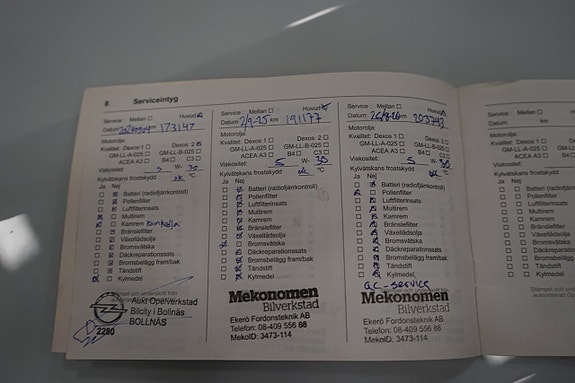 8 Serviceintyg
Service: Mellan Huvud
Datum km 173147
Motorolja:
Kvalitet: Dexos 1 Dexos 2
GM-LL-A-025 GM-LL-B-025
ACEA A3 B4 C3
Viskositet: 5 W- 30
Kylvätskans frostskydd ok °C
Ja Nej
Batteri (radiofjärrkontroll)
Pollenfilter
Luftfilterinsats
Multirem
Kamrem
Bränslefilter
Växellådsolja
Bromsvätska
Däckreparationssats
Bromsbelägg fram/bak
Tändstift
Kylmedel
Aukt Opelverkstad
Bilcity i Bollnäs
BOLLNÄS
2280
Service: Mellan Huvud
Datum 2/9-25 km 191177
Motorolja:
Kvalitet: Dexos 1 Dexos 2
GM-LL-A-025 GM-LL-B-025
ACEA A3 B4 C3
Viskositet: 5 W- 30
Kylvätskans frostskydd ok °C
Ja Nej
Batteri (radiofjärrkontroll)
Pollenfilter
Luftfilterinsats
Multirem
Kamrem
Bränslefilter
Växellådsolja
Bromsvätska
Däckreparationssats
Bromsbelägg fram/bak
Tändstift
Kylmedel
Mekonomen
Bilverkstad
Ekerö Fordonsteknik AB
Telefon: 08-409 556 88
MekoID: 3473-114
Service: Mellan Huvud
Datum km
Motorolja:
Kvalitet: Dexos 1 Dexos 2
GM-LL-A-025 GM-LL-B-025
ACEA A3 B4 C3
Viskositet: 5 W- 30
Kylvätskans frostskydd ok °C
Ja Nej
Batteri (radiofjärrkontroll)
Pollenfilter
Luftfilterinsats
Multirem
Kamrem
Bränslefilter
Växellådsolja
Bromsvätska
Däckreparationssats
Bromsbelägg fram/bak
Tändstift
Kylmedel
ac-service
Mekonomen
Bilverkstad
Ekerö Fordonsteknik AB
Telefon: 08-409 556 88
MekoID: 3473-114
Service:
Datum
Motorolja:
Kvalitet:
Viskositet:
Kylvätskans
Ja Nej